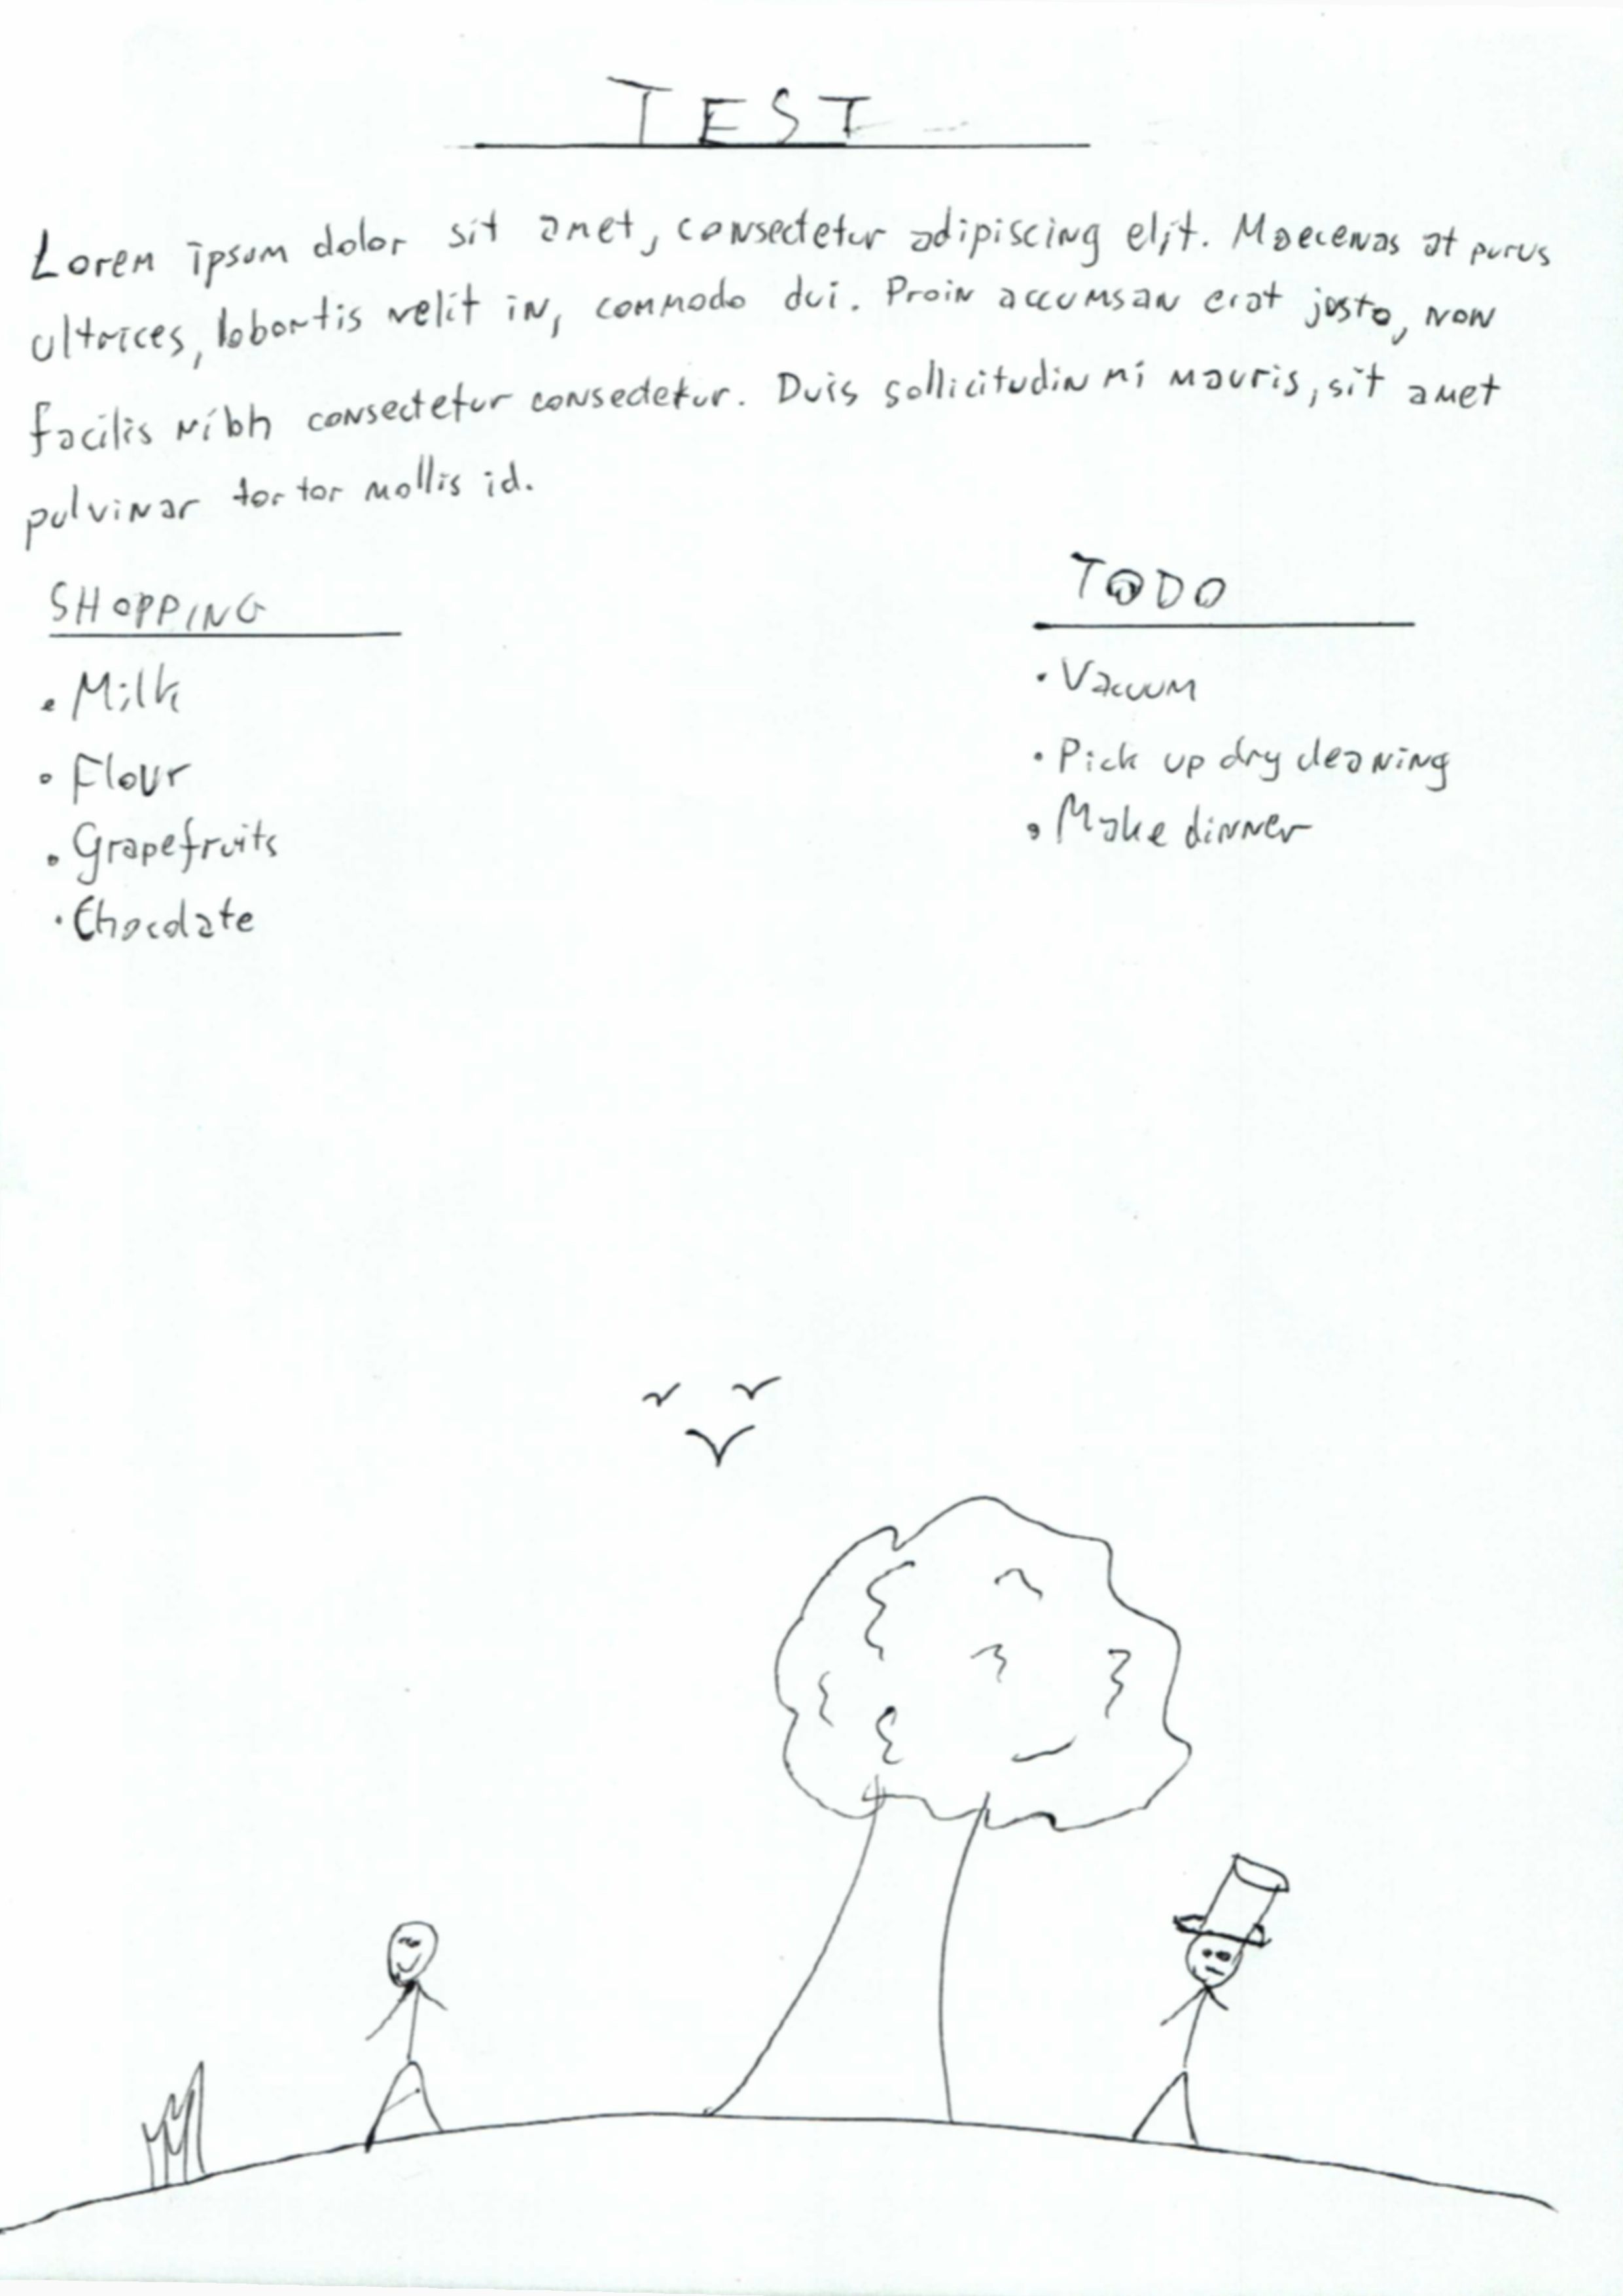 TEST
Lorem ipsum dolor sit amet, consectetur adipiscing elit. Maecenas at purus
ultrices, lobortis velit in, commodo dui. Proin accumsan erat justo, non
facilis nibh consectetur consectetur. Duis sollicitudin mi mauris, sit amet
pulvinar tortor mollis id.
SHOPPING
• Milk
• Flour
• Grapefruits
• Chocolate
TODO
• Vacuum
• Pick up dry cleaning
• Make dinner